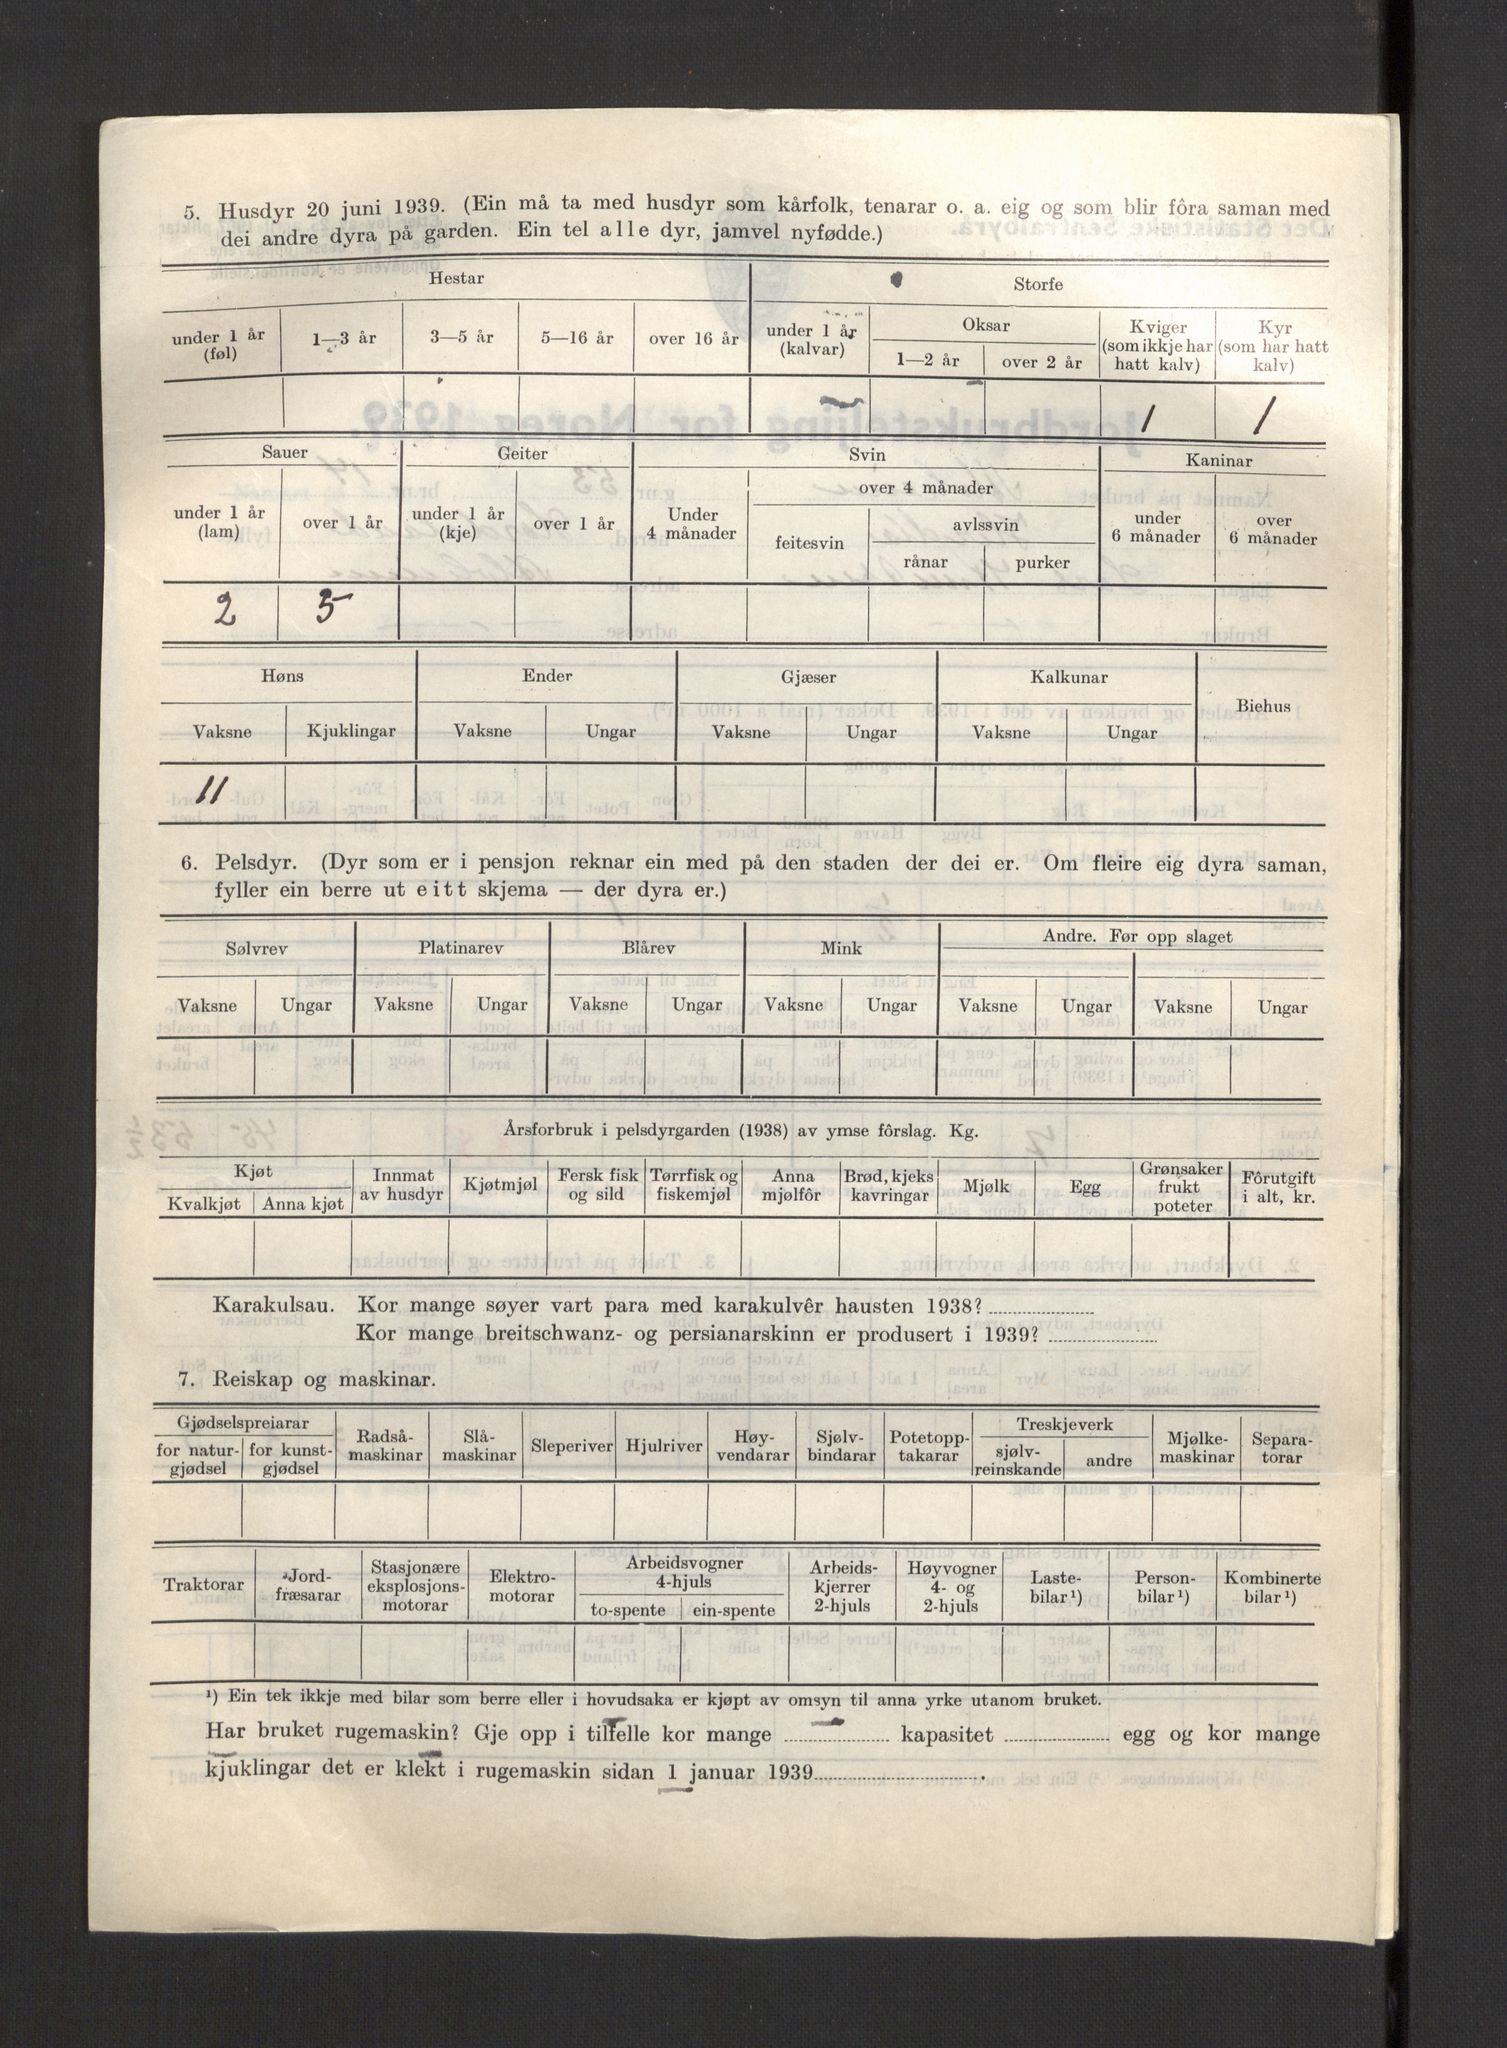 5. Husdyr 20 juni 1939. (Ein må ta med husdyr som kårfolk, tenarar o. a. eig og som blir fôra saman med
dei andre dyra på garden. Ein tel alle dyr, jamvel nyfødde.)
Hestar Storfe
under 1 år (føl) 1—3 år 3—5 år 5—16 år over 16 år under 1 år (kalvar) Oksar 1—2 år over 2 år Kviger (som ikkje har hatt kalv) Kyr (som har hatt kalv)
1 1
Sauer Geiter Svin Kaninar
under 1 år (lam) over 1 år under 1 år (kje) over 1 år Under 4 månader over 4 månader feitesvin avlssvin rånar purker under 6 månader over 6 månader
2 5
Høns Ender Gjæser Kalkunar Biehus
Vaksne Kjuklingar Vaksne Ungar Vaksne Ungar Vaksne Ungar
11
6. Pelsdyr. (Dyr som er i pensjon reknar ein med på den staden der dei er. Om fleire eig dyra saman,
fyller ein berre ut eitt skjema — der dyra er.)
Sølvrev Platinarev Blårev Mink Andre. Før opp slaget
Vaksne Ungar Vaksne Ungar Vaksne Ungar Vaksne Ungar Vaksne Ungar Vaksne Ungar
Årsforbruk i pelsdyrgarden (1938) av ymse fôrslag. Kg.
Kjøt Kvalkjøt Anna kjøt Innmat av husdyr Kjøtmjøl Fersk fisk og sild Tørrfisk og fiskemjøl Anna mjølfôr Brød, kjeks kavringar Mjølk Egg Grønsaker frukt poteter Fôrutgift i alt, kr.
Karakulsau. Kor mange søyer vart para med karakulvêr hausten 1938?
Kor mange breitschwanz- og persianarskinn er produsert i 1939?
7. Reiskap og maskinar.
Gjødselspreiarar for natur-gjødsel for kunst-gjødsel Radså-maskinar Slå-maskinar Sleperiver Hjulriver Høy-vendarar Sjølv-bindarar Potetopp-takarar Treskjeverk sjølv-reinskande andre Mjølke-maskinar Separa-torar
Traktorar Jord-fræsarar Stasjonære eksplosjons-motorar Elektro-motorar Arbeidsvogner 4-hjuls to-spente ein-spente Arbeids-kjerrer 2-hjuls Høyvogner 4- og 2-hjuls Laste-bilar ¹) Person-bilar ¹) Kombinerte bilar ¹)
¹) Ein tek ikkje med bilar som berre eller i hovudsaka er kjøpt av omsyn til anna yrke utanom bruket.
Har bruket rugemaskin? Gje opp i tilfelle kor mange kapasitet egg og kor mange
kjuklingar det er klekt i rugemaskin sidan 1 januar 1939 .